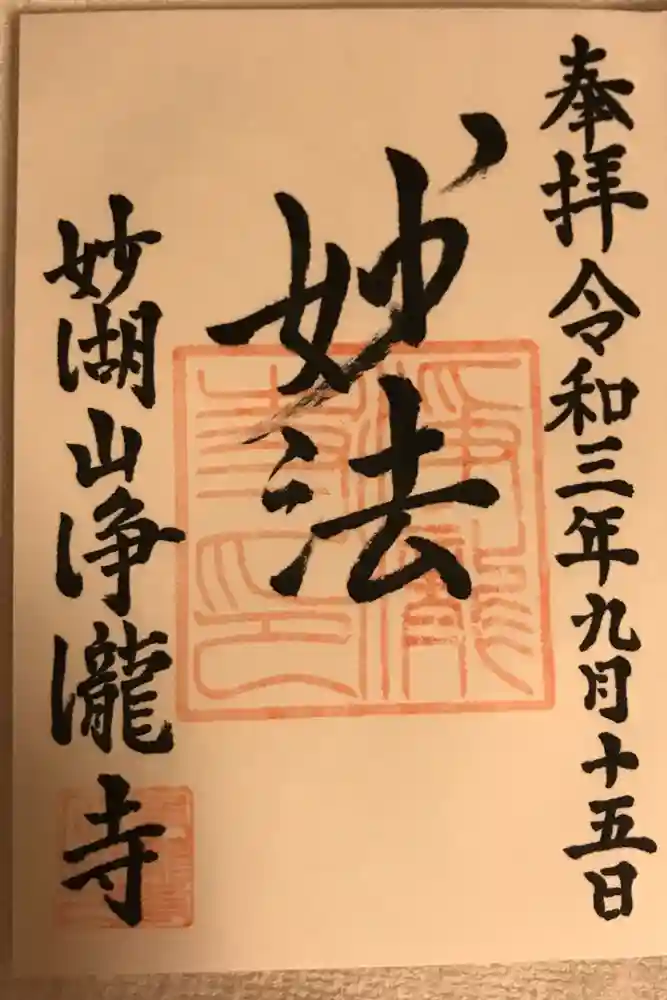 奉拝 令和三年九月十五日
妙法
浄瀧寺印
妙湖山浄瀧寺